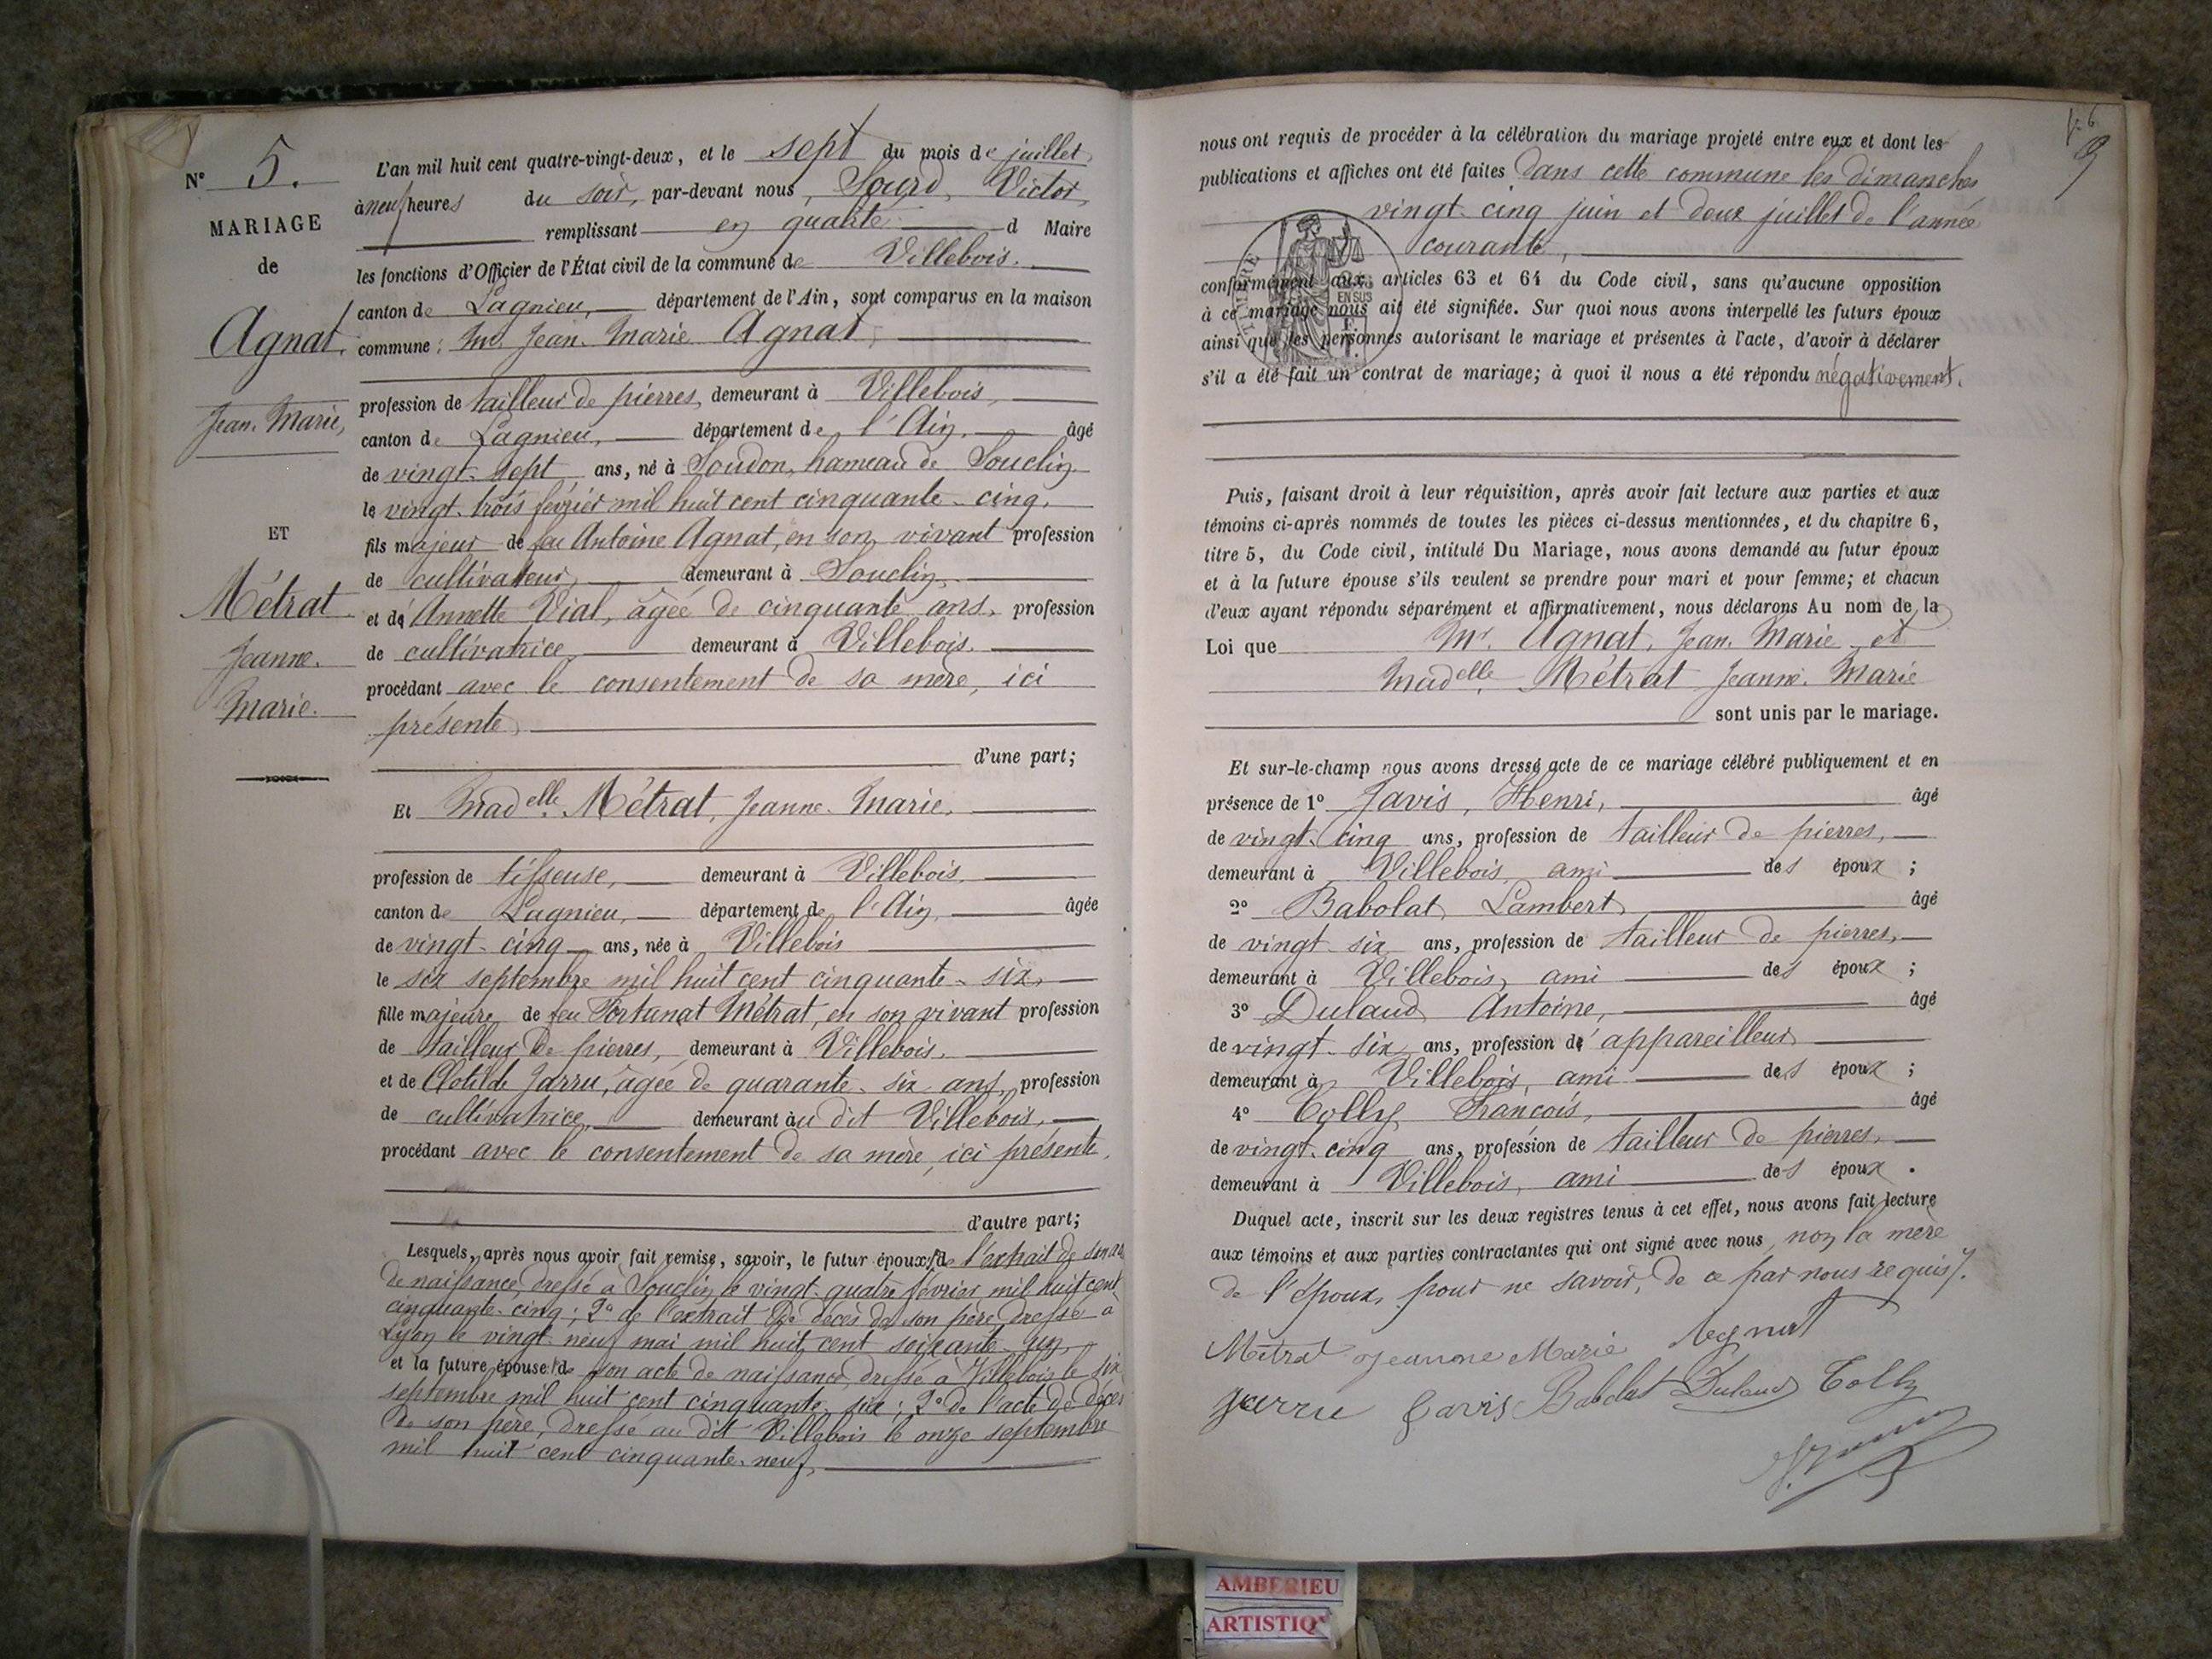 N° 5.
MARIAGE
de
Agnat,
Jean-Marie,
ET
Métrat
Jeanne-
Marie.
L'an mil huit cent quatre-vingt-deux, et le sept du mois de juillet,
à neuf heures du soir, par-devant nous, Sourd, Victor,
remplissant en qualité d Maire
les fonctions d'Officier de l'État civil de la commune de Villebois.
canton de Lagnieu, département de l'Ain, sont comparus en la maison
commune: Mr. Jean-Marie Agnat,
profession de tailleur de pierres, demeurant à Villebois,
canton de Lagnieu, département de l'Ain, âgé
de vingt-sept ans, né à Soudon, hameau de Souclin
le vingt-trois février mil huit cent cinquante-cinq,
fils majeur de feu Antoine Agnat, en son vivant profession
de cultivateur, demeurant à Souclin,
et de Annette Vial, âgée de cinquante ans, profession
de cultivatrice, demeurant à Villebois.
procédant avec le consentement de sa mère, ici
présente,
d'une part;
Et Madelle Métrat, Jeanne-Marie,
profession de tisseuse, demeurant à Villebois,
canton de Lagnieu, département de l'Ain, âgée
de vingt-cinq ans, née à Villebois
le six septembre mil huit cent cinquante-six,
fille majeure de feu Fortunat Métrat, en son vivant profession
de tailleur de pierres, demeurant à Villebois.
et de Clotilde Jarru, âgée de quarante-six ans, profession
de cultivatrice, demeurant au dit Villebois,
procédant avec le consentement de sa mère, ici présente,
d'autre part;
Lesquels, après nous avoir fait remise, savoir, le futur époux de l'extrait de son
de naissance, dressé à Souclin le vingt-quatre février mil huit cent
cinquante-cinq; 2° de l'extrait de décès de son père, dressé à
Lyon le vingt-neuf mai mil huit cent soixante-un,
et la future épouse de son acte de naissance, dressé à Villebois le six
septembre mil huit cent cinquante-six; 2° de l'acte de décès
de son père, dressé au dit Villebois le onze septembre
mil huit cent cinquante-neuf,
nous ont requis de procéder à la célébration du mariage projeté entre eux et dont les
publications et affiches ont été faites dans cette commune les dimanches
vingt-cinq juin et deux juillet de l'année
courante,
conformément aux articles 63 et 64 du Code civil, sans qu'aucune opposition
à ce mariage nous ait été signifiée. Sur quoi nous avons interpellé les futurs époux
ainsi que les personnes autorisant le mariage et présentes à l'acte, d'avoir à déclarer
s'il a été fait un contrat de mariage; à quoi il nous a été répondu négativement.
TIMBRE
EN SUS
Puis, faisant droit à leur réquisition, après avoir fait lecture aux parties et aux
témoins ci-après nommés de toutes les pièces ci-dessus mentionnées, et du chapitre 6,
titre 5, du Code civil, intitulé Du Mariage, nous avons demandé au futur époux
et à la future épouse s'ils veulent se prendre pour mari et pour femme; et chacun
d'eux ayant répondu séparément et affirmativement, nous déclarons Au nom de la
Loi que Mr. Agnat, Jean-Marie et
Madelle Métrat Jeanne-Marie
sont unis par le mariage.
Et sur-le-champ nous avons dressé acte de ce mariage célébré publiquement et en
présence de 1° Javis, Henri, âgé
de vingt-cinq ans, profession de tailleur de pierres,
demeurant à Villebois, ami des époux;
2° Babolat, Lambert, âgé
de vingt-six ans, profession de tailleur de pierres,
demeurant à Villebois, ami des époux;
3° Dulaud Antoine, âgé
de vingt-six ans, profession d'appareilleur
demeurant à Villebois, ami des époux;
4° Colly, François, âgé
de vingt-cinq ans, profession de tailleur de pierres,
demeurant à Villebois, ami des époux.
Duquel acte, inscrit sur les deux registres tenus à cet effet, nous avons fait lecture
aux témoins et aux parties contractantes qui ont signé avec nous, non la mère
de l'époux, pour ne savoir, de ce par nous requis.
Métrat Jeanne Marie Agnat
Jarru Javis Babolat Dulaud Colly
AMBERIEU
ARTISTIQ